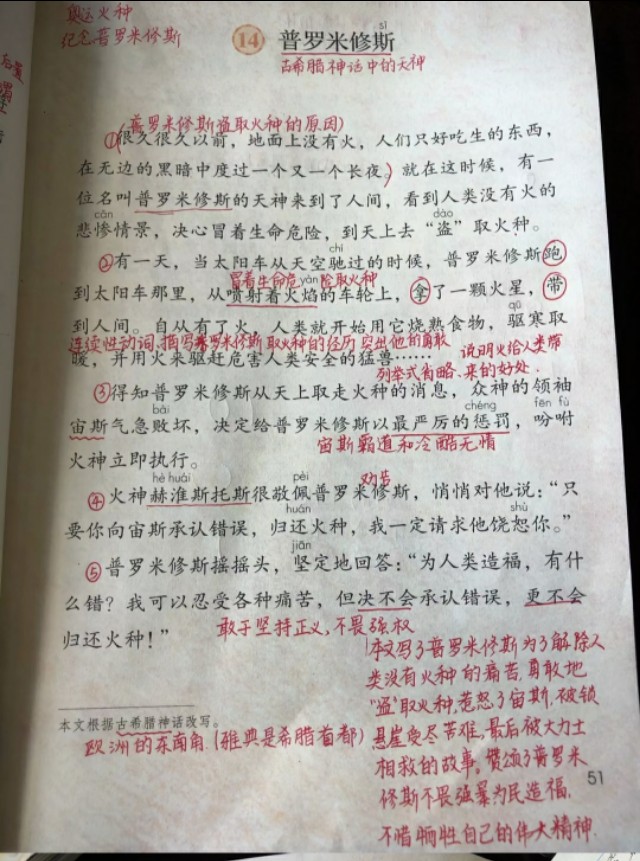 奥运火种
纪念普罗米修斯
sī
14 普罗米修斯
古希腊神话中的天神
(普罗米修斯盗取火种的原因)
①很久很久以前，地面上没有火，人们只好吃生的东西，
在无边的黑暗中度过一个又一个长夜。就在这时候，有一
位名叫普罗米修斯的天神来到了人间，看到人类没有火的
cǎn dào
悲惨情景，决心冒着生命危险，到天上去“盗”取火种。
chí
②有一天，当太阳车从天空驰过的时候，普罗米修斯跑
冒着生命危险取火种
yàn
到太阳车那里，从喷射着火焰的车轮上，拿了一颗火星，带
qū
到人间。自从有了火，人类就开始用它烧熟食物，驱寒取
连续性动词，描写普罗米修斯取火种的经历突出他的勇敢
说明火给人类带
暖，并用火来驱赶危害人类安全的猛兽……
列举式省略.来的好处.
③得知普罗米修斯从天上取走火种的消息，众神的领袖
bài chéng fēn fù
宙斯气急败坏，决定给普罗米修斯以最严厉的惩罚，吩咐
宙斯霸道和冷酷无情
火神立即执行。
hè huái pèi
劝告
④火神赫淮斯托斯很敬佩普罗米修斯，悄悄对他说：“只
huán shù
要你向宙斯承认错误，归还火种，我一定请求他饶恕你。”
jiān
⑤普罗米修斯摇摇头，坚定地回答：“为人类造福，有什
么错？我可以忍受各种痛苦，但决不会承认错误，更不会
归还火种！”
敢于坚持正义，不畏强权
本文写了普罗米修斯为了解除人
类没有火种的痛苦，勇敢地
“盗”取火种，惹怒了宙斯，被锁
悬崖受尽苦难，最后被大力士
相救的故事。赞颂了普罗米
修斯不畏强暴为民造福，
不惜牺牲自己的伟大精神.
本文根据古希腊神话改写。
欧洲的东南角.(雅典是希腊首都)
51